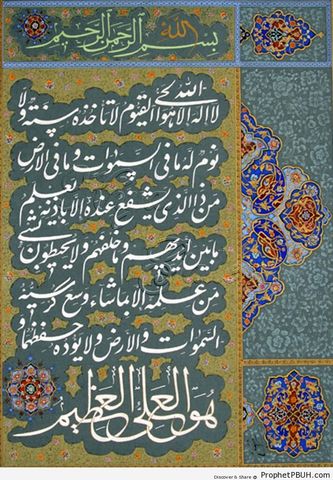 بسم الله الرحمن الرحیم
الله
لا اله الا هو الحی القیوم لا تاخذه سنة ولا
نوم له ما فی السموات وما فی الارض
من ذا الذی یشفع عنده الا باذنه یعلم
ما بین ایدیهم وما خلفهم ولا یحیطون بشی
من علمه الا بما شاء وسع کرسیه
السموات والارض ولا یوده حفظهما و
هو العلی العظیم
Discover & Share @ ProphetPBUH.com